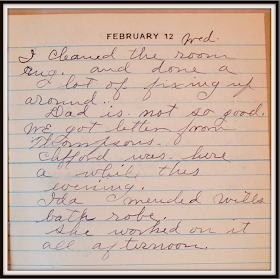 FEBRUARY 12 Wed.
I cleaned the room
rug. and done a
lot of fixing up
around.
Dad is not so good.
We got letter from
Thompsons.
Clifford was here
a while this
evening.
Ida mended Wills
bath robe.
she worked on it
all afternoon.